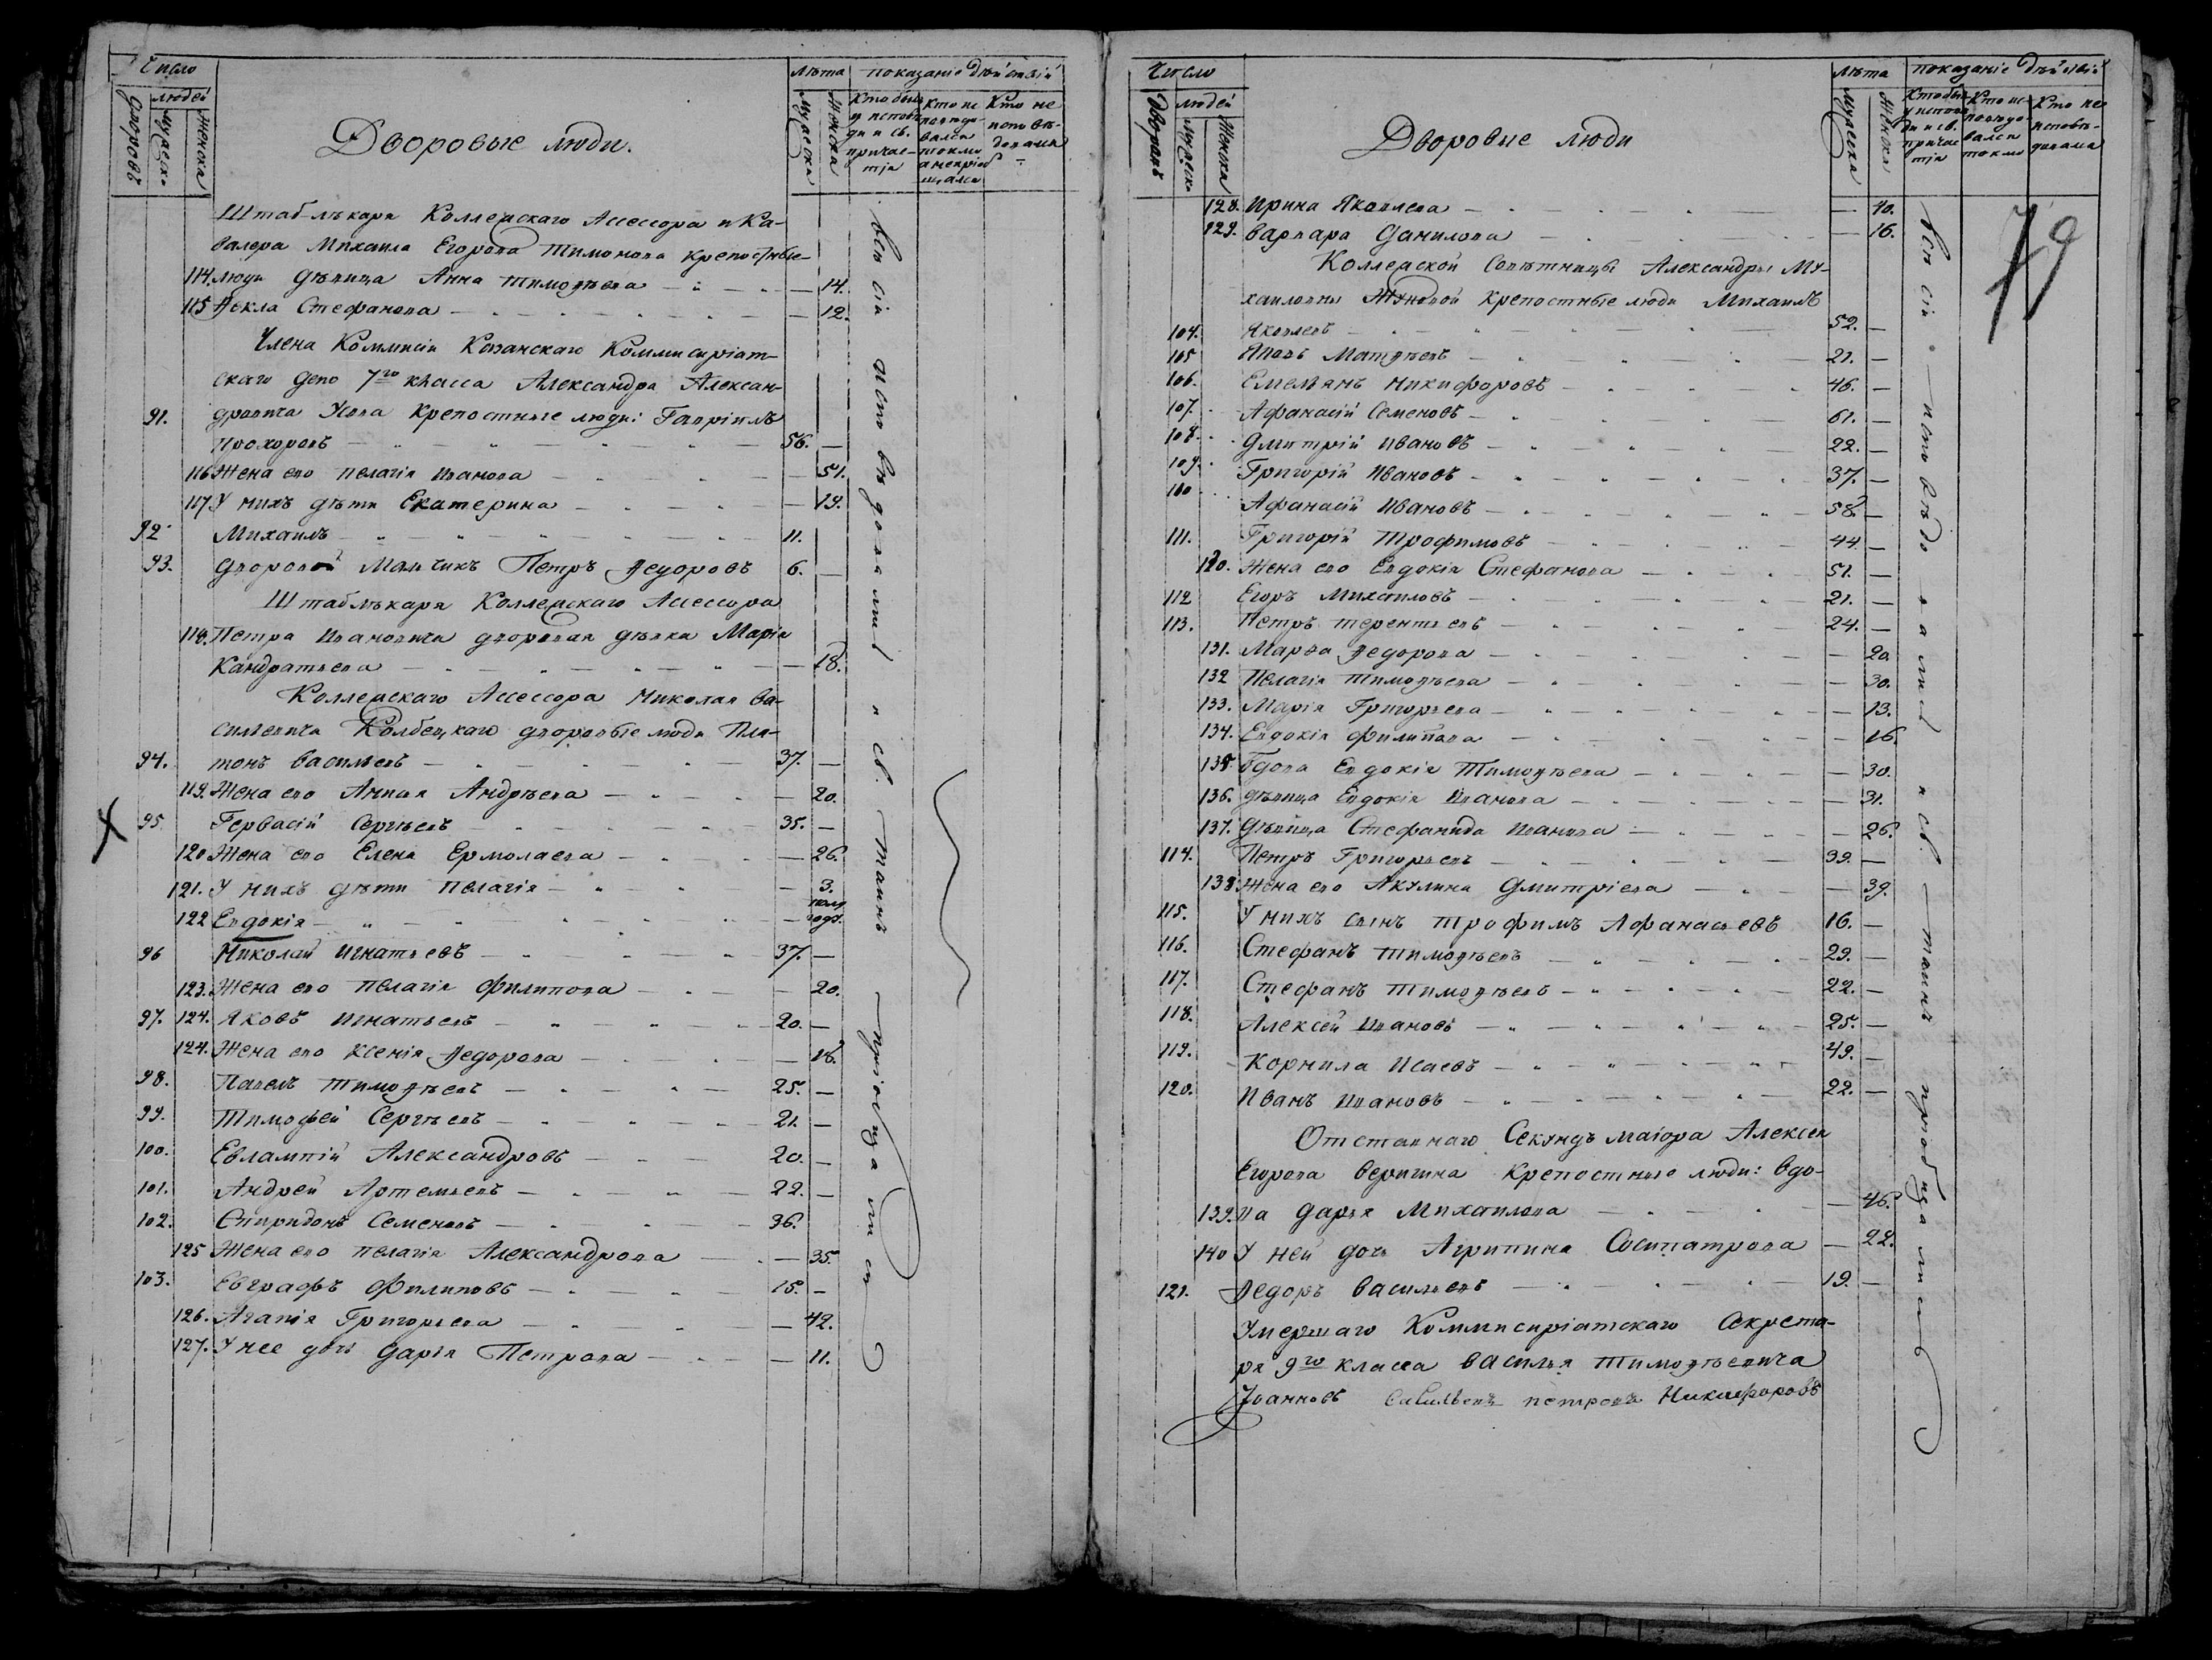 Число
лѣта показаніе дѣйствій
Дворовъ
людей
мужеска
женска
Дворовые люди.
мужеска
женска
Кто былъ у исповѣди и св. причастія
Кто исповѣдывался токмо а не пріобщался
Кто не исповѣдовался
Штаб-лѣкаря Коллежскаго Ассессора и Ка-
валера Михаила Егорова Тимонова крепостные
114. люди дѣвица Анна Тимофѣева — 14.
115 Ѳекла Стефанова — 12.
Члена Коммисіи Казанскаго Коммисаріат-
скаго депо 7го класса Александра Алексан-
91. дровича Усова крепостные люди: Гавріилъ
Прохоровъ — 56. —
116 Жена его Пелагія Иванова — 51.
117. У нихъ дѣти Екатерина — 19.
92. Михаилъ — 11.
93. Дворовой Мальчикъ Петръ Ѳедоровъ 6. —
Штаблѣкаря Коллежскаго Ассессора
118. Петра Ивановича дворовая дѣвка Марія
Кандратьева — 18.
Коллежскаго Ассессора Николая Ва-
сильевича Колбецкаго дворовые люди Пла-
94. тонъ Васильевъ — 37. —
119. Жена его Анисья Андрѣева — 20.
95. Гервасій Сергѣевъ — 35. —
120 Жена его Елена Ермолаева — 26.
121. У нихъ дѣти Пелагія — 3.
122 Евдокія — полгода.
96 Николай Игнатьевъ — 37. —
123. Жена его Пелагія Филипова — 20.
97. 124. Яковъ Игнатьевъ — 20. —
124. Жена его Ксенія Ѳедорова — 18.
98. Павелъ Тимоѳѣевъ — 25. —
99. Тимофей Сергѣевъ — 21. —
100. Евлампій Александровъ — 20. —
101. Андрей Артемьевъ — 22. —
102. Спиридонъ Семеновъ — 36.
125 Жена его Пелагія Александрова — 35.
103. Евграфъ Филиповъ — 15. —
126. Агапія Григорьева — 42.
127. У нее дочь Дарія Петрова — 11.
всѣ сіи исповѣдовались и св. таинъ пріобщались
Число
лѣта показаніе дѣйствій
Дворовъ
людей
мужеска
женска
Дворовые люди
мужеска
женска
Кто былъ у исповѣди и св. причастія
Кто исповѣдовался токмо
Кто не исповѣдовался
79
128. Ирина Яковлева — 40.
129. Варвара Данилова — 16.
Коллежской Совѣтницы Александры Ми-
хаиловны крепостные люди Михаилъ
104. Яковлевъ — 52. —
105 Матвѣевъ — 21. —
106. Емельянъ Никифоровъ — 46. —
107. Афанасій Семеновъ — 61. —
108. Дмитрій Ивановъ — 22. —
109. Григорій Ивановъ — 37. —
110 Афанасій Ивановъ — 58. —
111. Григорій Трофимовъ — 44 —
130. Жена его Евдокія Стефанова — 51. —
112 Егоръ Михаиловъ — 21. —
113. Петръ Терентьевъ — 24. —
131. Марѳа Ѳедорова — 20.
132 Пелагія Тимоѳѣева — 30.
133. Марія Григорьева — 13.
134. Евдокія Филипова — 16.
135. Вдова Евдокія Тимоѳѣева — 30.
136. Дѣвица Евдокія Иванова — 31.
137. Дѣвица Стефанида Иванова — 26.
114. Петръ Григорьевъ — 39. —
138. Жена его Акулина Дмитріева — 39.
115. У нихъ сынъ Трофимъ Афанасьевъ 16. —
116. Стефанъ Тимоѳѣевъ — 29. —
117. Стефанъ Тимоѳѣевъ — 22. —
118. Алексей Ивановъ — 25. —
119. Корнила Исаевъ — 49. —
120. Иванъ Ивановъ — 22. —
Отставнаго Секундъ маіора Алексея
Егорова Веригина крепостные люди: вдо-
139. ва Дарья Михаилова — 46.
140 У ней дочь Агрипина Сосипатрова — 22.
121. Ѳедоръ Васильевъ — 19. —
Умершаго Коммисаріатскаго Секрета-
ря 9го класса Василья Тимоѳѣевича
Іоанновъ Савельевъ Петровъ Никифоровъ
всѣ сіи исповѣдовались и св. таинъ пріобщались